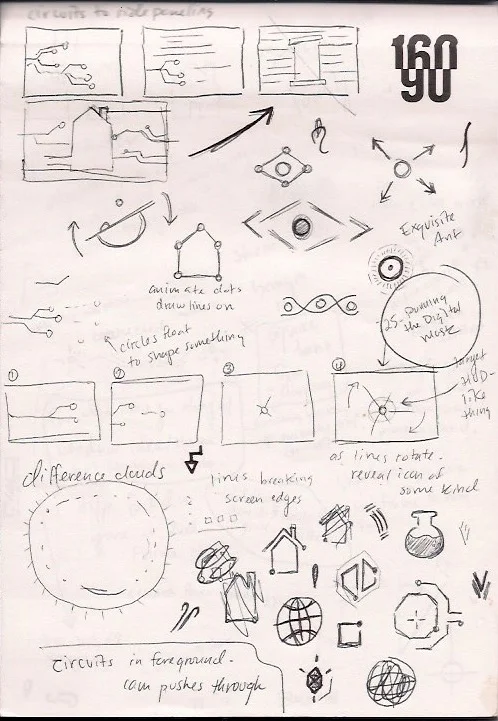 circuits to side paneling
160
90
Exquisite
Ant
animate dots
draw lines on
circles float
to shape something
25-
the Digital
target
HUD-
like
thing
1
2
3
4
as lines rotate.
reveal icon of
some kind
difference clouds
lines breaking
screen edges
circuits in foreground.
cam pushes through